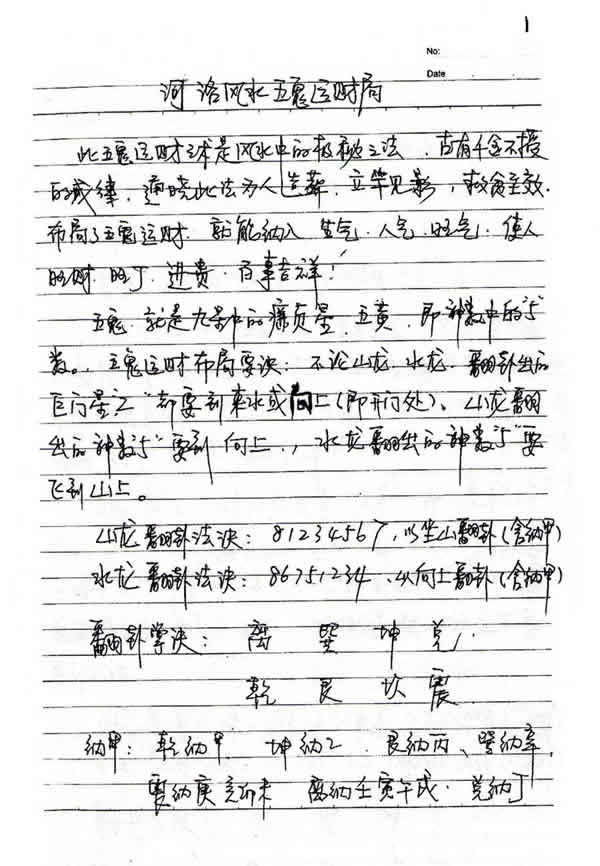 1
No:
Date
河洛风水五鬼运财局
此五鬼运财之术是风水中的极秘之法，古有千金不授
的戒律，通晓此法为人造葬，立竿见影，救贫至效.
布局了五鬼运财，就能纳入生气.人气.旺气.使人
旺财.旺丁.进贵.百事吉祥！
五鬼.就是九星中的廉贞星.五黄.即神数中的"5"
数。五鬼运财布局要诀：不论山龙.水龙.翻卦出的
巨门星"2"都要到来水或向上(即开门处)、山龙翻
出的神数"5"要到向上，水龙翻出的神数"5"要
飞到山上。
山龙翻卦法诀：81234567，以坐山翻卦(含纳甲)
水龙翻卦法诀：86751234.以向上翻卦(含纳甲)
翻卦掌诀：离 巽 坤 兑
乾 艮 坎 震
纳甲：乾纳甲 坤纳乙.艮纳丙、巽纳辛.
震纳庚亥卯未 离纳壬寅午戌.兑纳丁